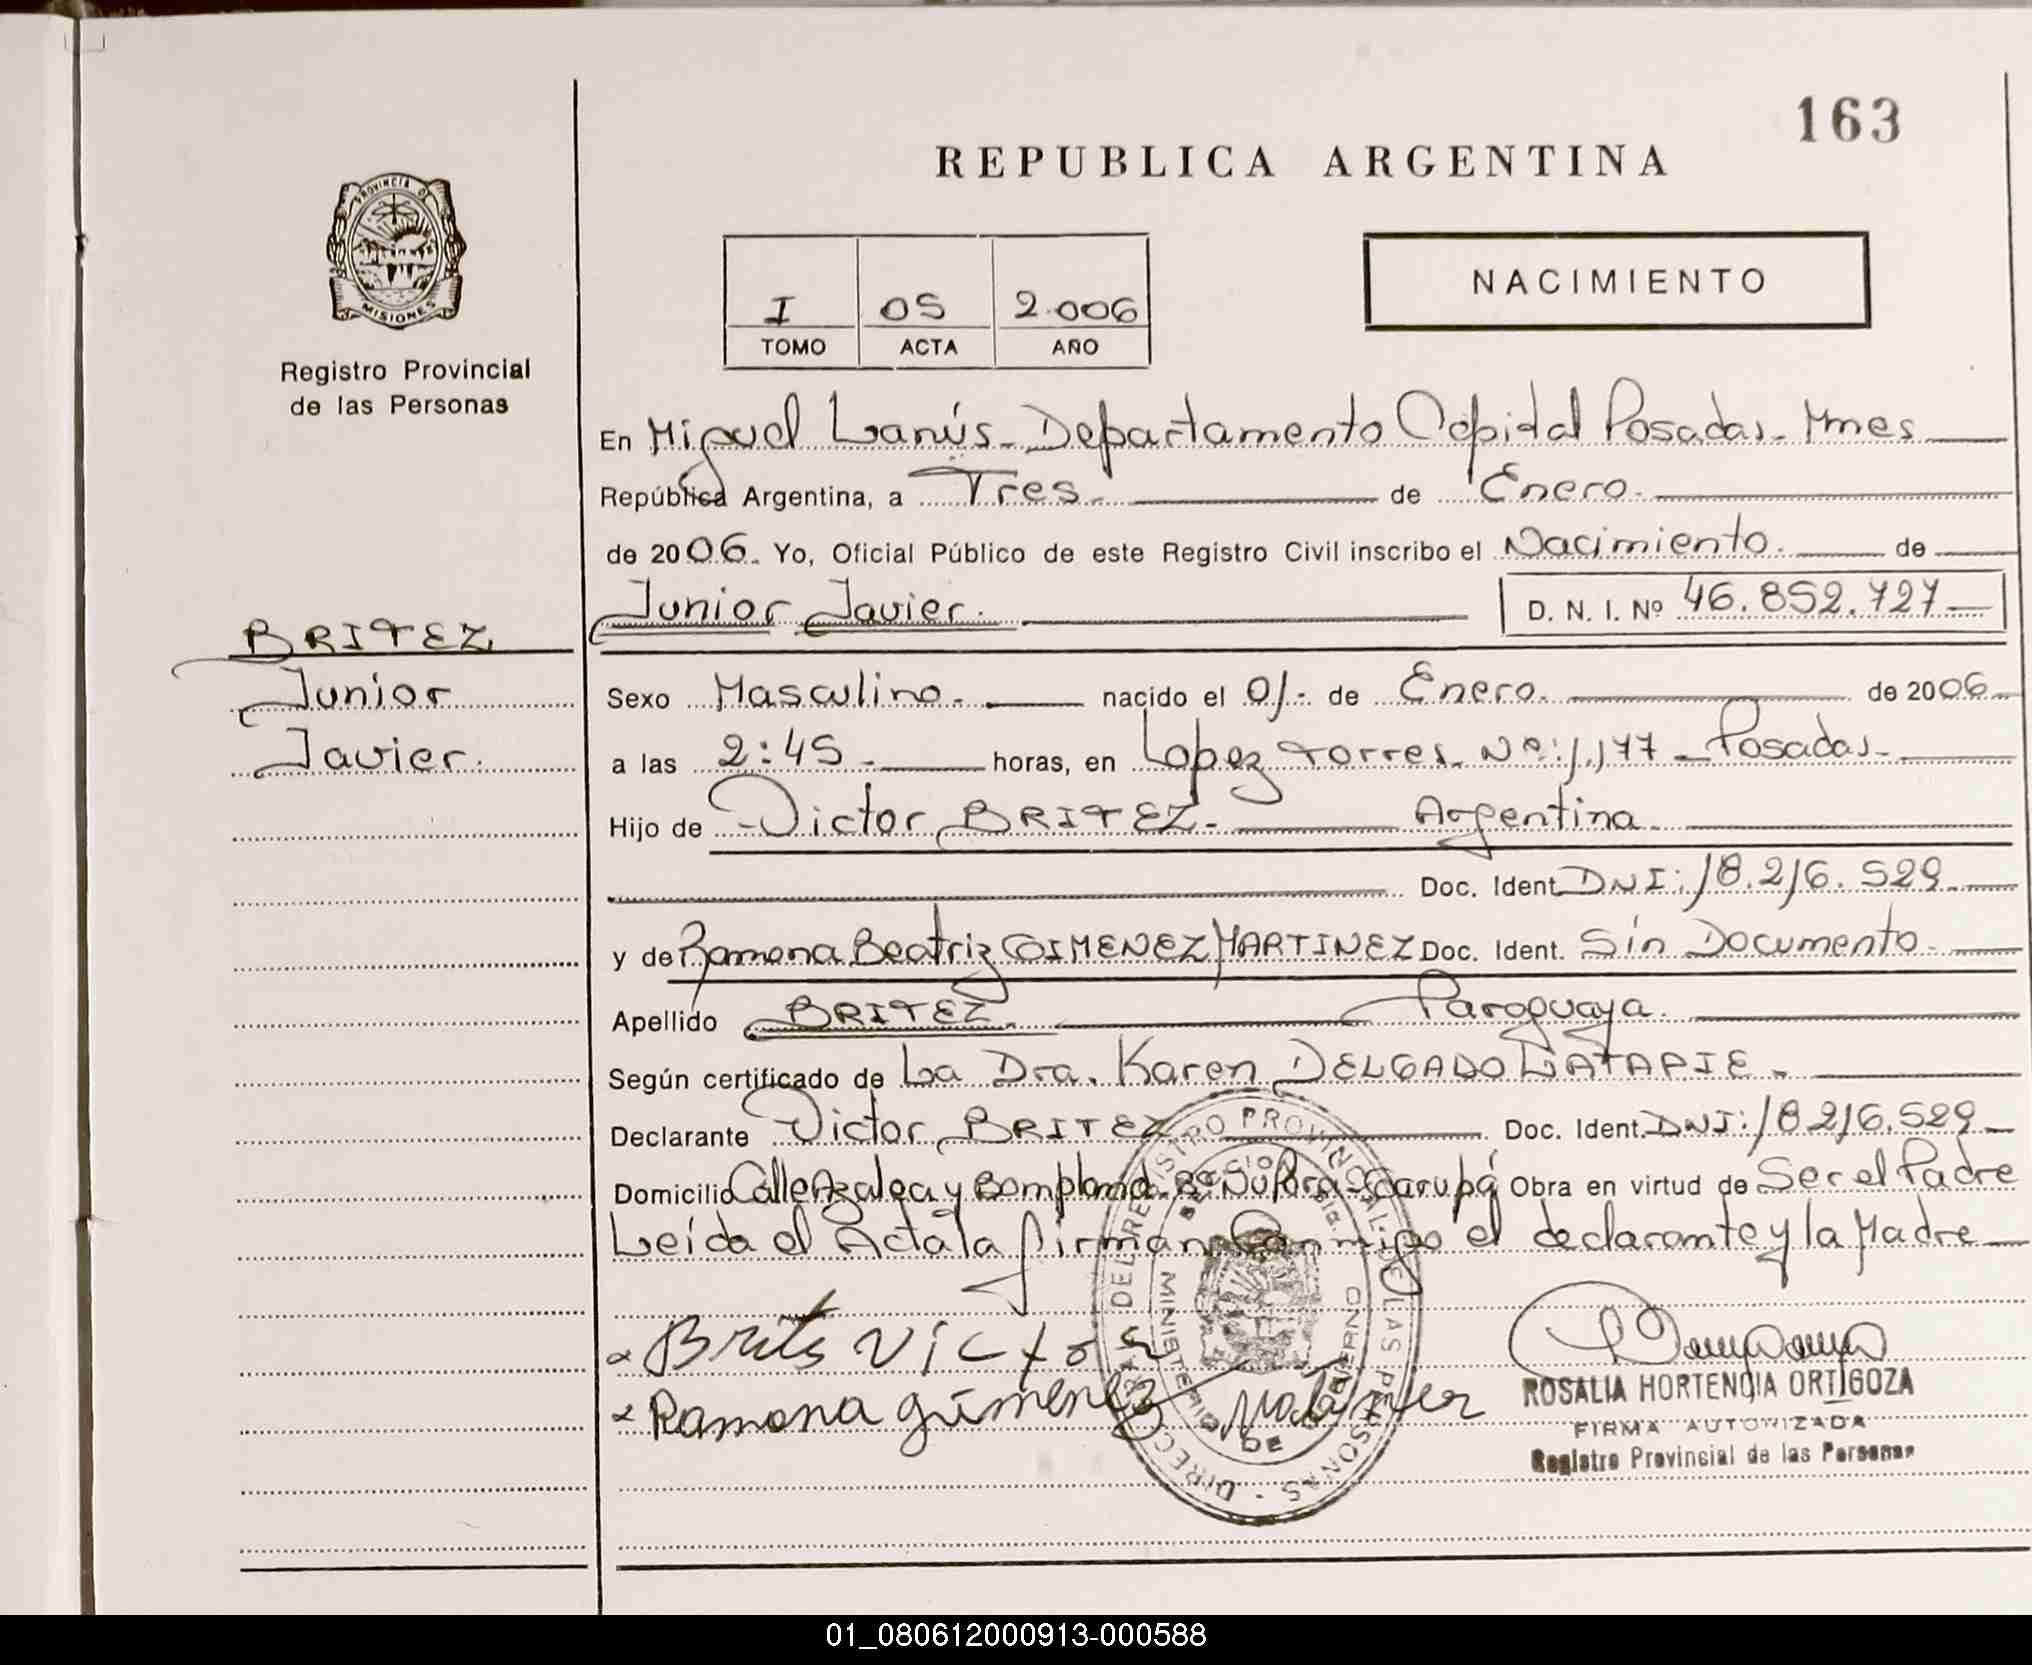 163
REPUBLICA ARGENTINA
PROVINCIA DE
MISIONES
Registro Provincial
de las Personas
I 05 2.006
TOMO ACTA AÑO
NACIMIENTO
En Miguel Lanús - Departamento Capital Posadas - Mnes
República Argentina, a Tres - de Enero.
de 2006. Yo, Oficial Público de este Registro Civil inscribo el Nacimiento. de
Junior Javier. D. N. I. Nº 46.852.727
BRITEZ
Junior
Javier.
Sexo Masculino. nacido el 01- de Enero. de 2006
a las 2:45 - horas, en Lopez Torres. Nº: 1.177 - Posadas -
Hijo de Victor BRITEZ - Argentina
Doc. Ident. DNI: 18.216.529
y de Ramona Beatriz GIMENEZ MARTINEZ Doc. Ident. Sin Documento.
Apellido BRITEZ Paraguaya.
Según certificado de La Dra. Karen DELGADO LATAPIE.
Declarante Victor BRITEZ Doc. Ident. DNI: 18.216.529
Domicilio Calle Azalea y Bompland. Bº Ñu Pora - Garupá Obra en virtud de Ser el Padre
Leída el Acta la firman conmigo el declarante y la Madre
Brits Victor
Ramona gimenez
DIRECC DEL REGISTRO PROVINCIAL DE LAS PERSONAS
MINISTERIO DE GOBIERNO
ROSALIA HORTENCIA ORTIGOZA
FIRMA AUTORIZADA
Registro Provincial de las Personas
01_080612000913-000588